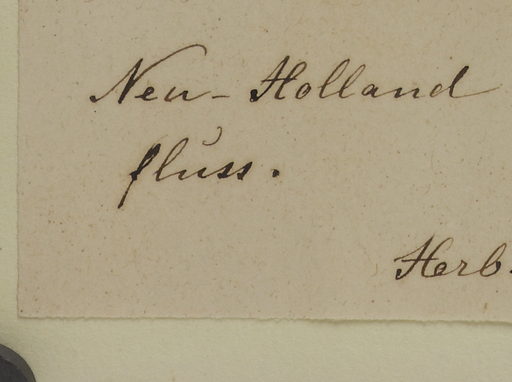 Neu-Holland
fluss.
Herb.